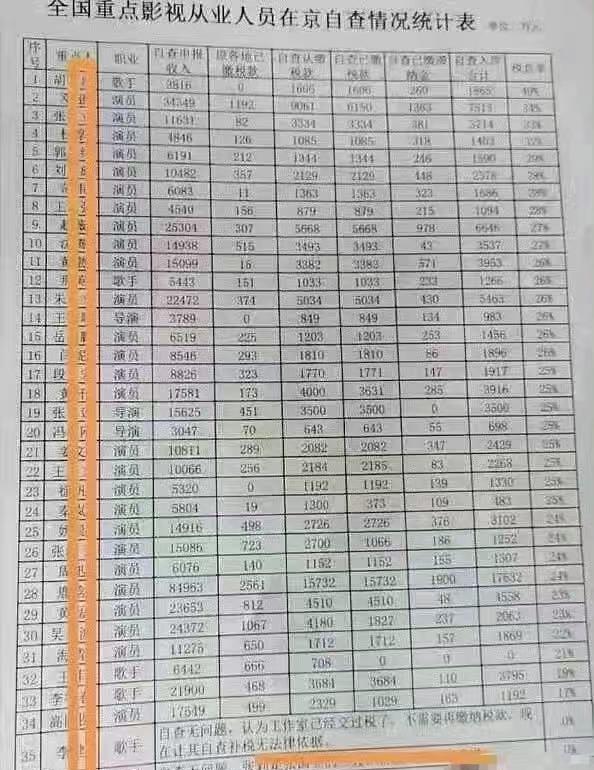 全国重点影视从业人员在京自查情况统计表 单位：万元
序号 重点人 职业 自查申报收入 原各地已缴税款 自查认缴税款 自查已缴税款 自查已缴滞纳金 自查入库合计 税负率
1 胡 歌手 3816 0 1606 1606 260 1865
2 演员 34349 1192 9061 6150 1363 7513 34%
3 张 演员 11631 82 3334 3334 381 3714 33%
4 杜 演员 4846 126 1085 1085 318 1403
5 郭 演员 6191 212 1344 1344 246 1590 29%
6 刘 演员 10482 357 2129 2129 448 2578 28%
7 演员 6083 11 1363 1363 323 1686 28%
8 王 演员 4540 156 879 879 215 1094 28%
9 赵 演员 25304 307 5668 5668 978 6646 27%
10 演员 14938 515 3493 3493 43 3537 27%
11 黄 演员 15099 15 3382 3382 571 3953 26%
12 歌手 5443 151 1033 1033 233 1266 26%
13 朱 演员 22472 374 5034 5034 430 5463 26%
14 王 导演 3789 0 849 849 134 983 26%
15 岳 演员 6519 225 1203 1203 253 1456 26%
16 演员 8546 293 1810 1810 86 1896 26%
17 段 演员 8826 323 1770 1771 147 1917 25%
18 黄 演员 17581 173 4000 3631 285 3916 25%
19 张 导演 15625 451 3500 3500 0 3500 25%
20 冯 导演 3047 70 643 643 55 698 25%
21 文 演员 10811 289 2082 2082 347 2429 25%
22 王 演员 10066 256 2184 2185 83 2268 25%
23 演员 5320 0 1192 1192 139 1330 25%
24 秦 演员 5804 19 1300 373 109 483 25%
25 演员 14916 498 2726 2726 376 3102 24%
26 张 演员 15086 723 2700 1066 186 1252 24%
27 周 演员 6076 140 1152 1152 155 1307 24%
28 演员 84963 2561 15732 15732 1900 17632 24%
29 黄 演员 23653 812 4510 4510 48 4558 23%
30 吴 演员 24372 1067 4180 1827 237 2063 23%
31 演员 11275 650 1712 1712 157 1869 22%
32 王 歌手 6442 666 708 0 0 0 21%
33 李 歌手 21900 468 3684 3684 110 3795 19%
34 高 演员 17549 499 2329 1029 163 1192 17%
35 李 歌手 自查无问题，认为工作室已经交过税了，不需要再缴纳税款，现在让其自查补税无法律依据。 0%